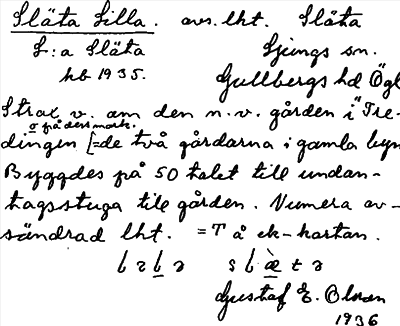 Släta Lilla. avs. lht. Släta
L:a Släta Ljungs sn.
hb 1935. Gullbergs hd Ögl
Strax v. om den n.v. gården i "Tre-
o på dess mark.
dingen [=de två gårdarna i gamla byn
Byggdes på 50 talet till undan-
tagsstuga till gården. Numera av-
söndrad lht. = T å ek-kartan.
Gustaf E. Olsson
1936